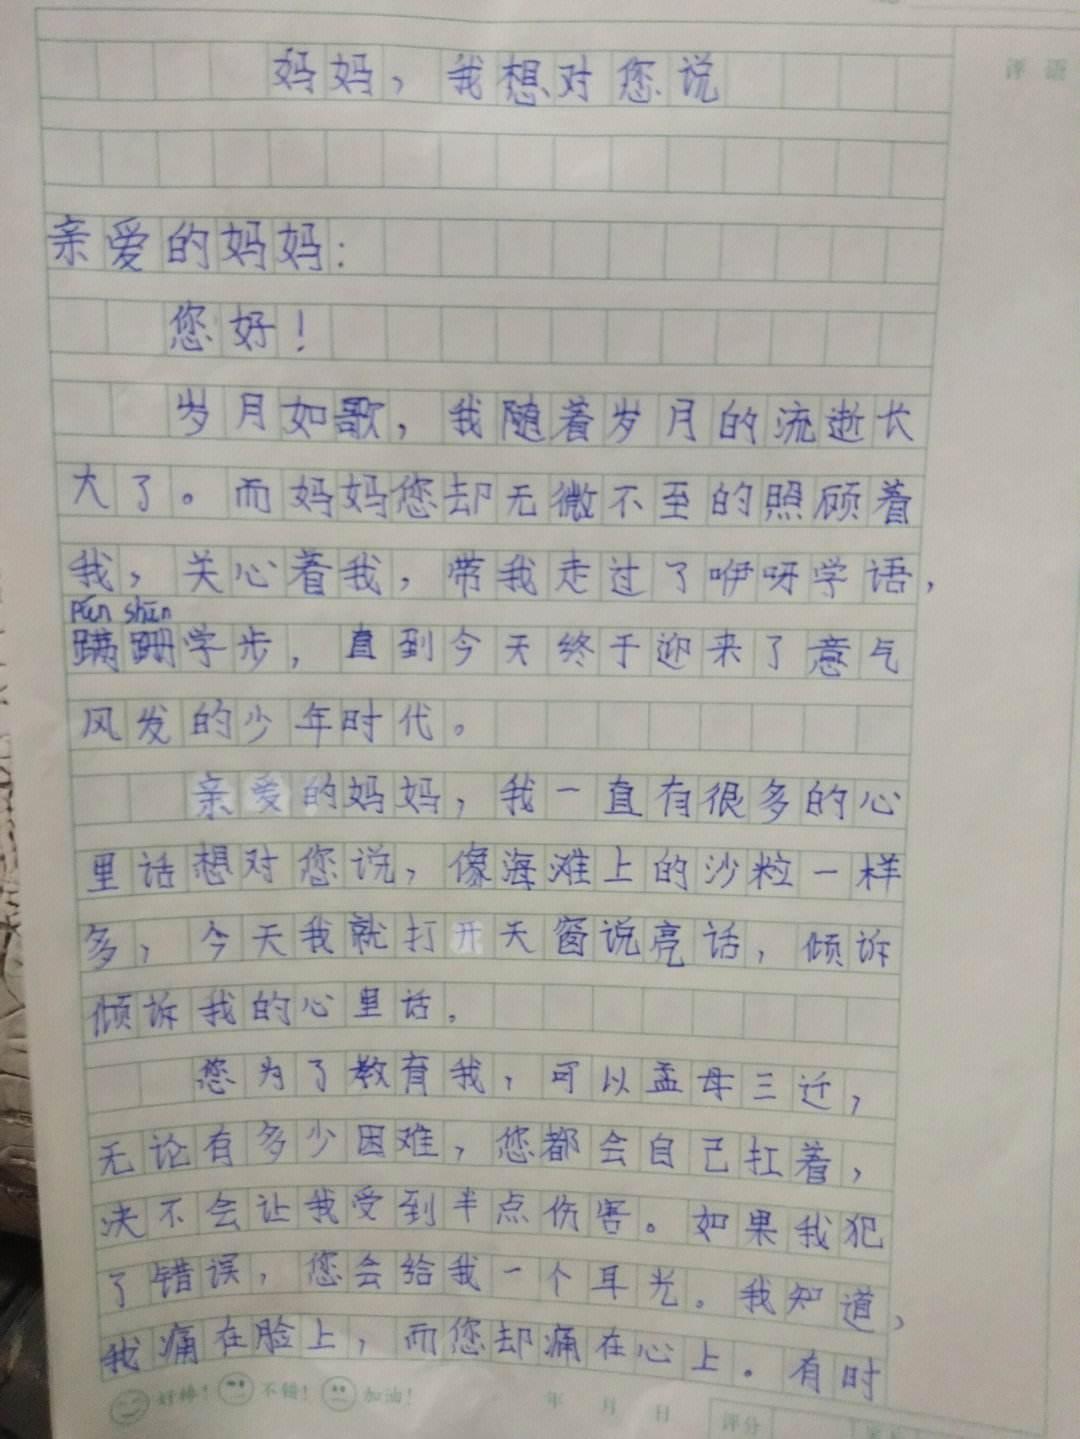 评语
妈妈，我想对您说
亲爱的妈妈：
您好！
岁月如歌，我随着岁月的流逝长
大了。而妈妈您却无微不至的照顾着
我，关心着我，带我走过了咿呀学语，
pán shān
蹒跚学步，直到今天终于迎来了意气
风发的少年时代。
亲爱的妈妈，我一直有很多的心
里话想对您说，像海滩上的沙粒一样
多，今天我就打开天窗说亮话，倾诉
倾诉我的心里话。
您为了教育我，可以孟母三迁，
无论有多少困难，您都会自己扛着，
决不会让我受到半点伤害。如果我犯
了错误，您会给我一个耳光。我知道，
我痛在脸上，而您却痛在心上。有时
好棒！ 不错！ 加油！ 年 月 日 评分